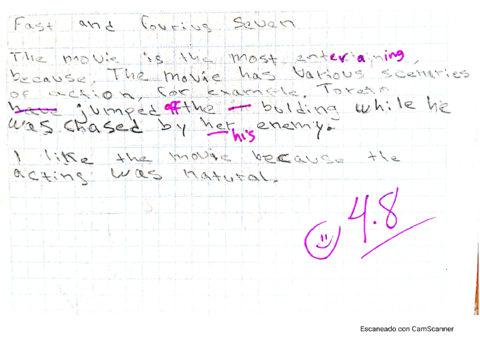 Fast and fouring Seven
The movie is the most enteraining,
because, The movie has various scenaries
of action, for example, Toreto
have jumped off the bulding while he
was chased by her his enemy.
I like the movie because the
acting was natural.
4.8
Escaneado con CamScanner